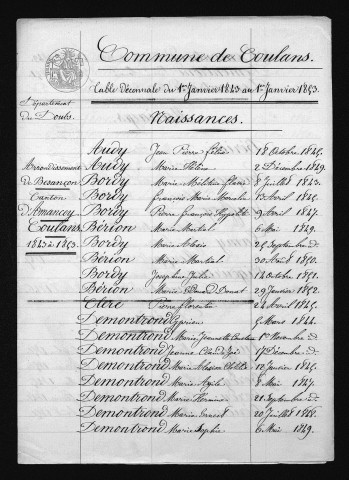 Commune de Coulans.
Table décennale du 1er Janvier 1843 au 1er Janvier 1853.
Département
du Doubs.
Naissances.
Arrondissement
de Besançon
Canton
d'Amancey
Coulans
1843 à 1853.
Audy Jean Pierre Félix 18 Octobre 1845.
Audy Marie Héléne 2 Décembre 1849.
Bordy Marie Mélitine 8 Juillet 1843.
Bordy François Marie 13 Avril 1845.
Bordy Pierre François Hypolite 9 Avril 1847.
Bérion Marie Martial 6 Mai 1849.
Bordy Marie Alexis 25 Septembre d°
Bérion Marie Martial 30 Août 1850.
Bordy Josephine Julie 14 Octobre 1851.
Bérion Marie Donat 29 Janvier 1852.
Clerc Pierre Florentin 24 Avril 1845.
Demontrond Cyprien 5 Mars 1844.
Demontrond Marie Jeannette 1er Novembre d°
Demontrond Jeanne Claude 17 Décembre d°
Demontrond Marie 10 Janvier 1845.
Demontrond Marie 8 Mai 1847.
Demontrond Marie Hermine 21 Septembre d°
Demontrond Marie 20 Juillet 1848.
Demontrond Marie Sophie 6 Mai 1849.